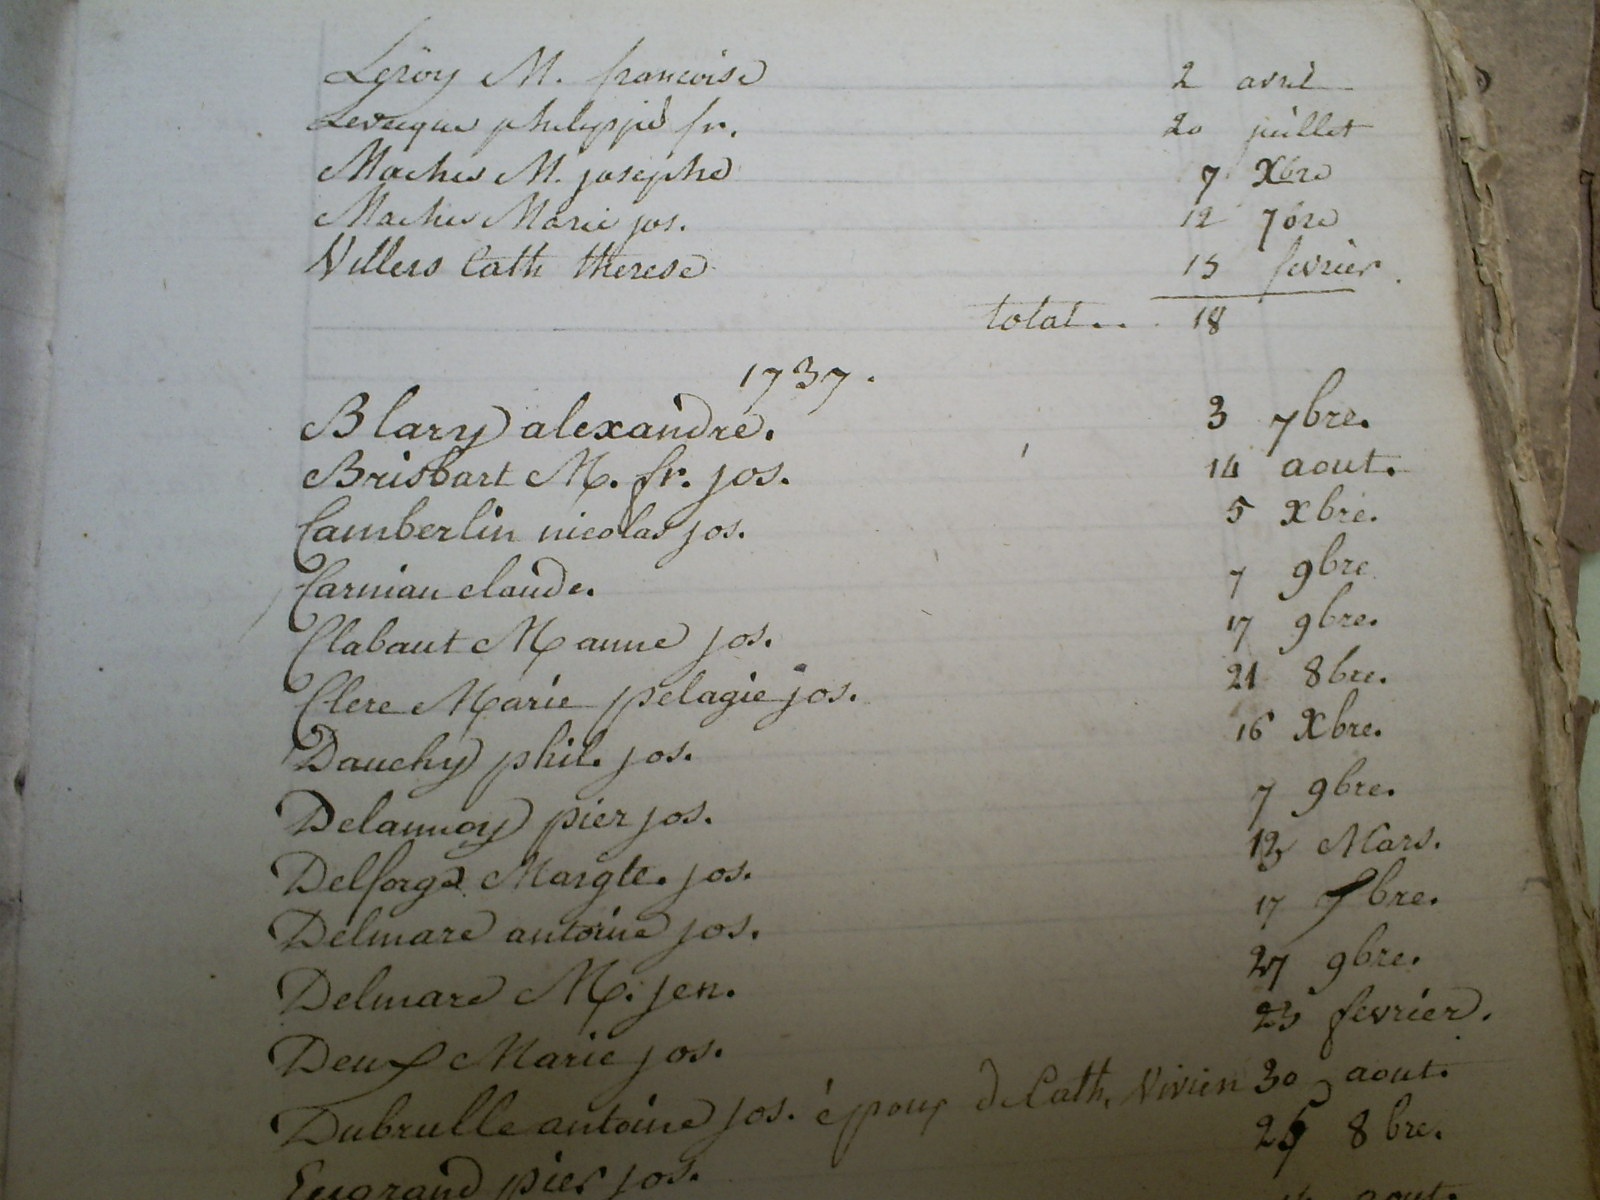 Leroy M. francoise 2 avril
Levecque philippe fr. 20 juillet
Maches M. josephe 7 Xbre
Maches Marie jos. 12 7bre
Villers Cath therese 15 fevrier.
total.. 18
1737.
Blary alexandre. 3 7bre.
Brisbart M. fr. jos. 14 aout.
Camberlin nicolas jos. 5 xbre.
Carniau claude. 7 9bre
Clabaut M anne jos. 17 9bre.
Clere Marie pelagie jos. 21 8bre.
Dauchy phil. jos. 16 Xbre.
Delannoy pier jos. 7 9bre.
Delforge Margte. jos. 13 Mars.
Delmare antoine jos. 17 9bre.
Delmare M. jen. 27 9bre.
Deux Marie jos. 23 fevrier.
Dubrulle antoine jos. époux d Cath. Vivien 30 aout.
Engrand pier jos. 25 8bre.
aout.